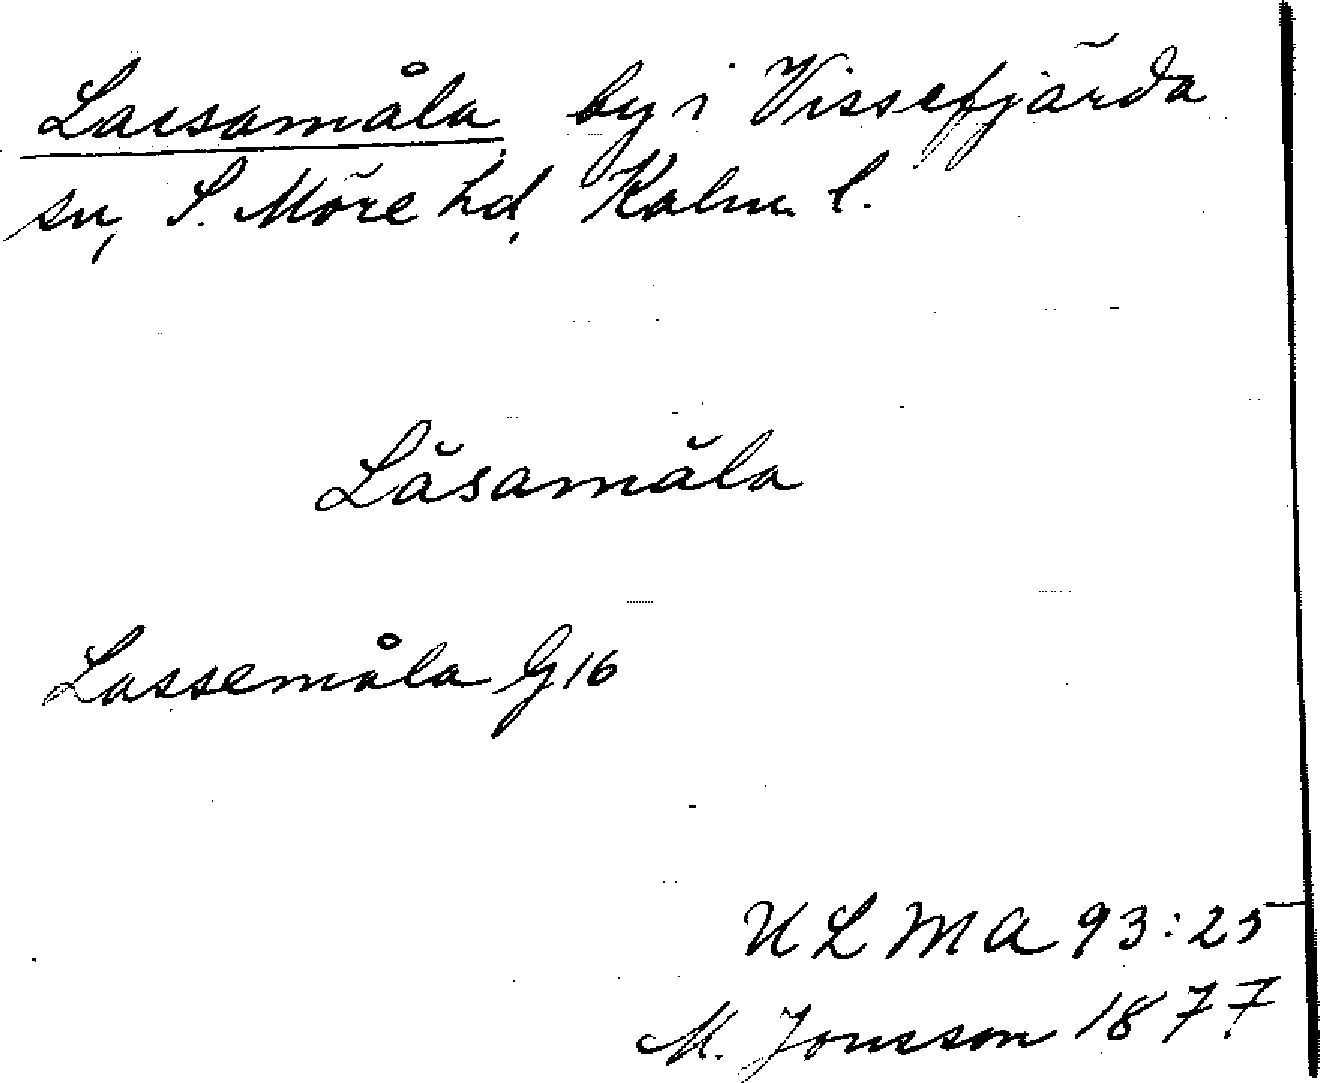 Larsamåla, by i Vissefjärda
sn, S. Möre hd, Kalm. l.
Låsamåla
Lassemåla G16
ULMA 93:25
M. Jonsson 1877